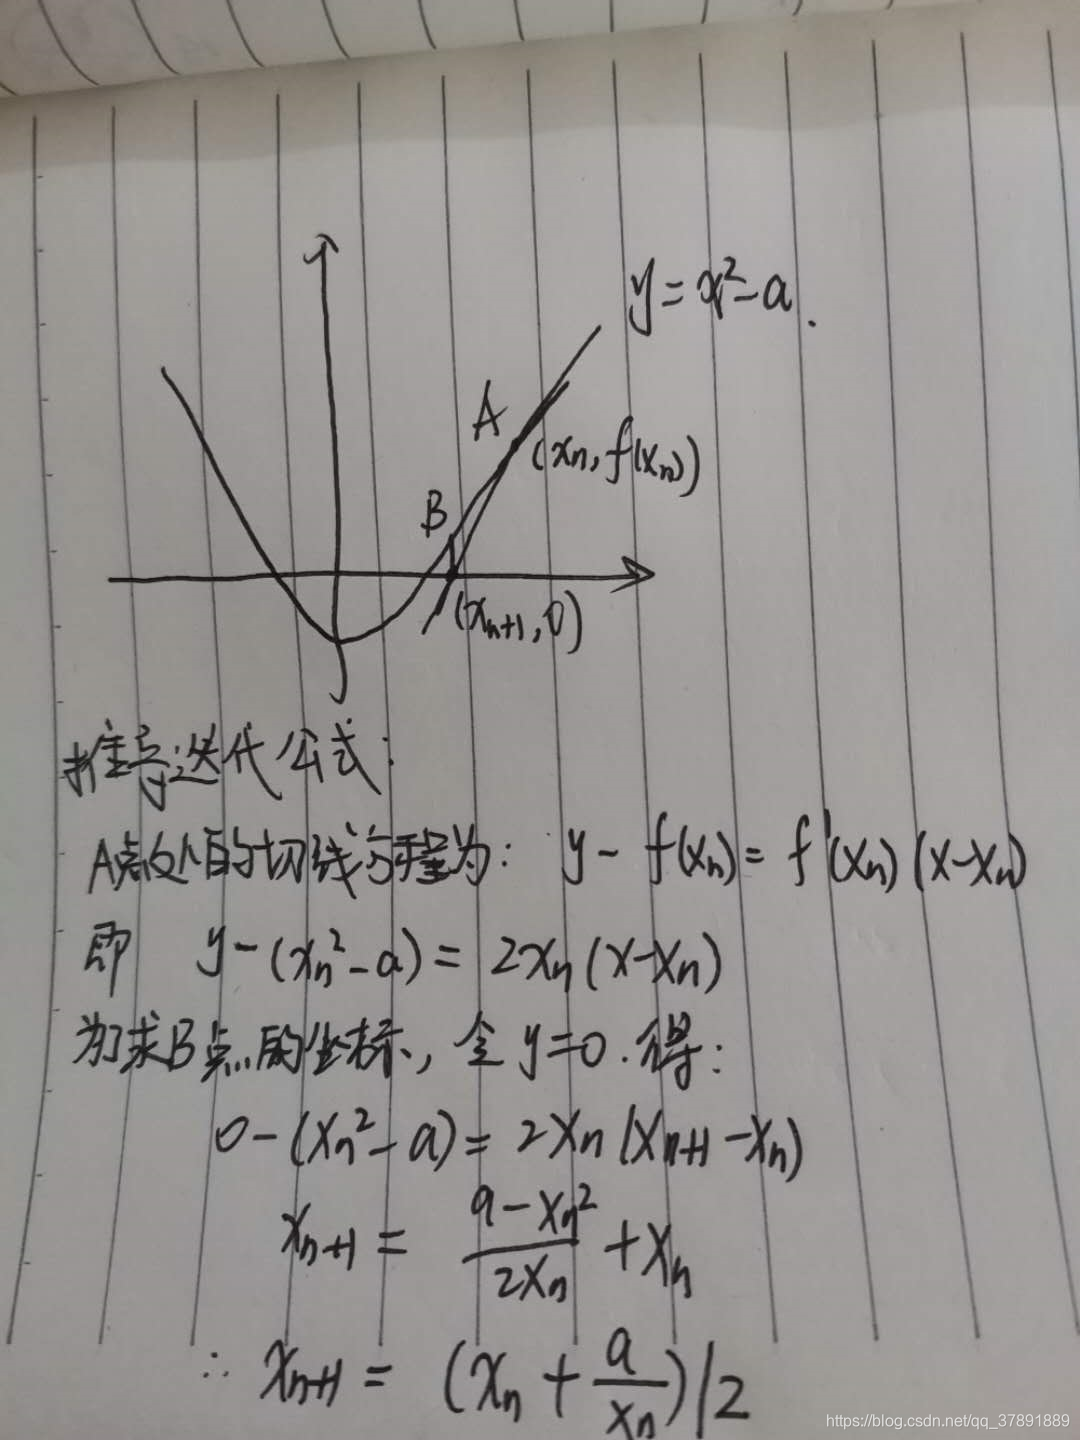 y = x² - a.
A
(xₙ, f(xₙ))
B
(xₙ₊₁, 0)
推导迭代公式:
A点处的切线方程为: y - f(xₙ) = f'(xₙ)(x - xₙ)
即 y - (xₙ² - a) = 2xₙ(x - xₙ)
为了求B点的坐标, 令 y=0. 得:
0 - (xₙ² - a) = 2xₙ(xₙ₊₁ - xₙ)
xₙ₊₁ = \frac{a - xₙ²}{2xₙ} + xₙ
∴ xₙ₊₁ = (xₙ + \frac{a}{xₙ})/2
https://blog.csdn.net/qq_37891889